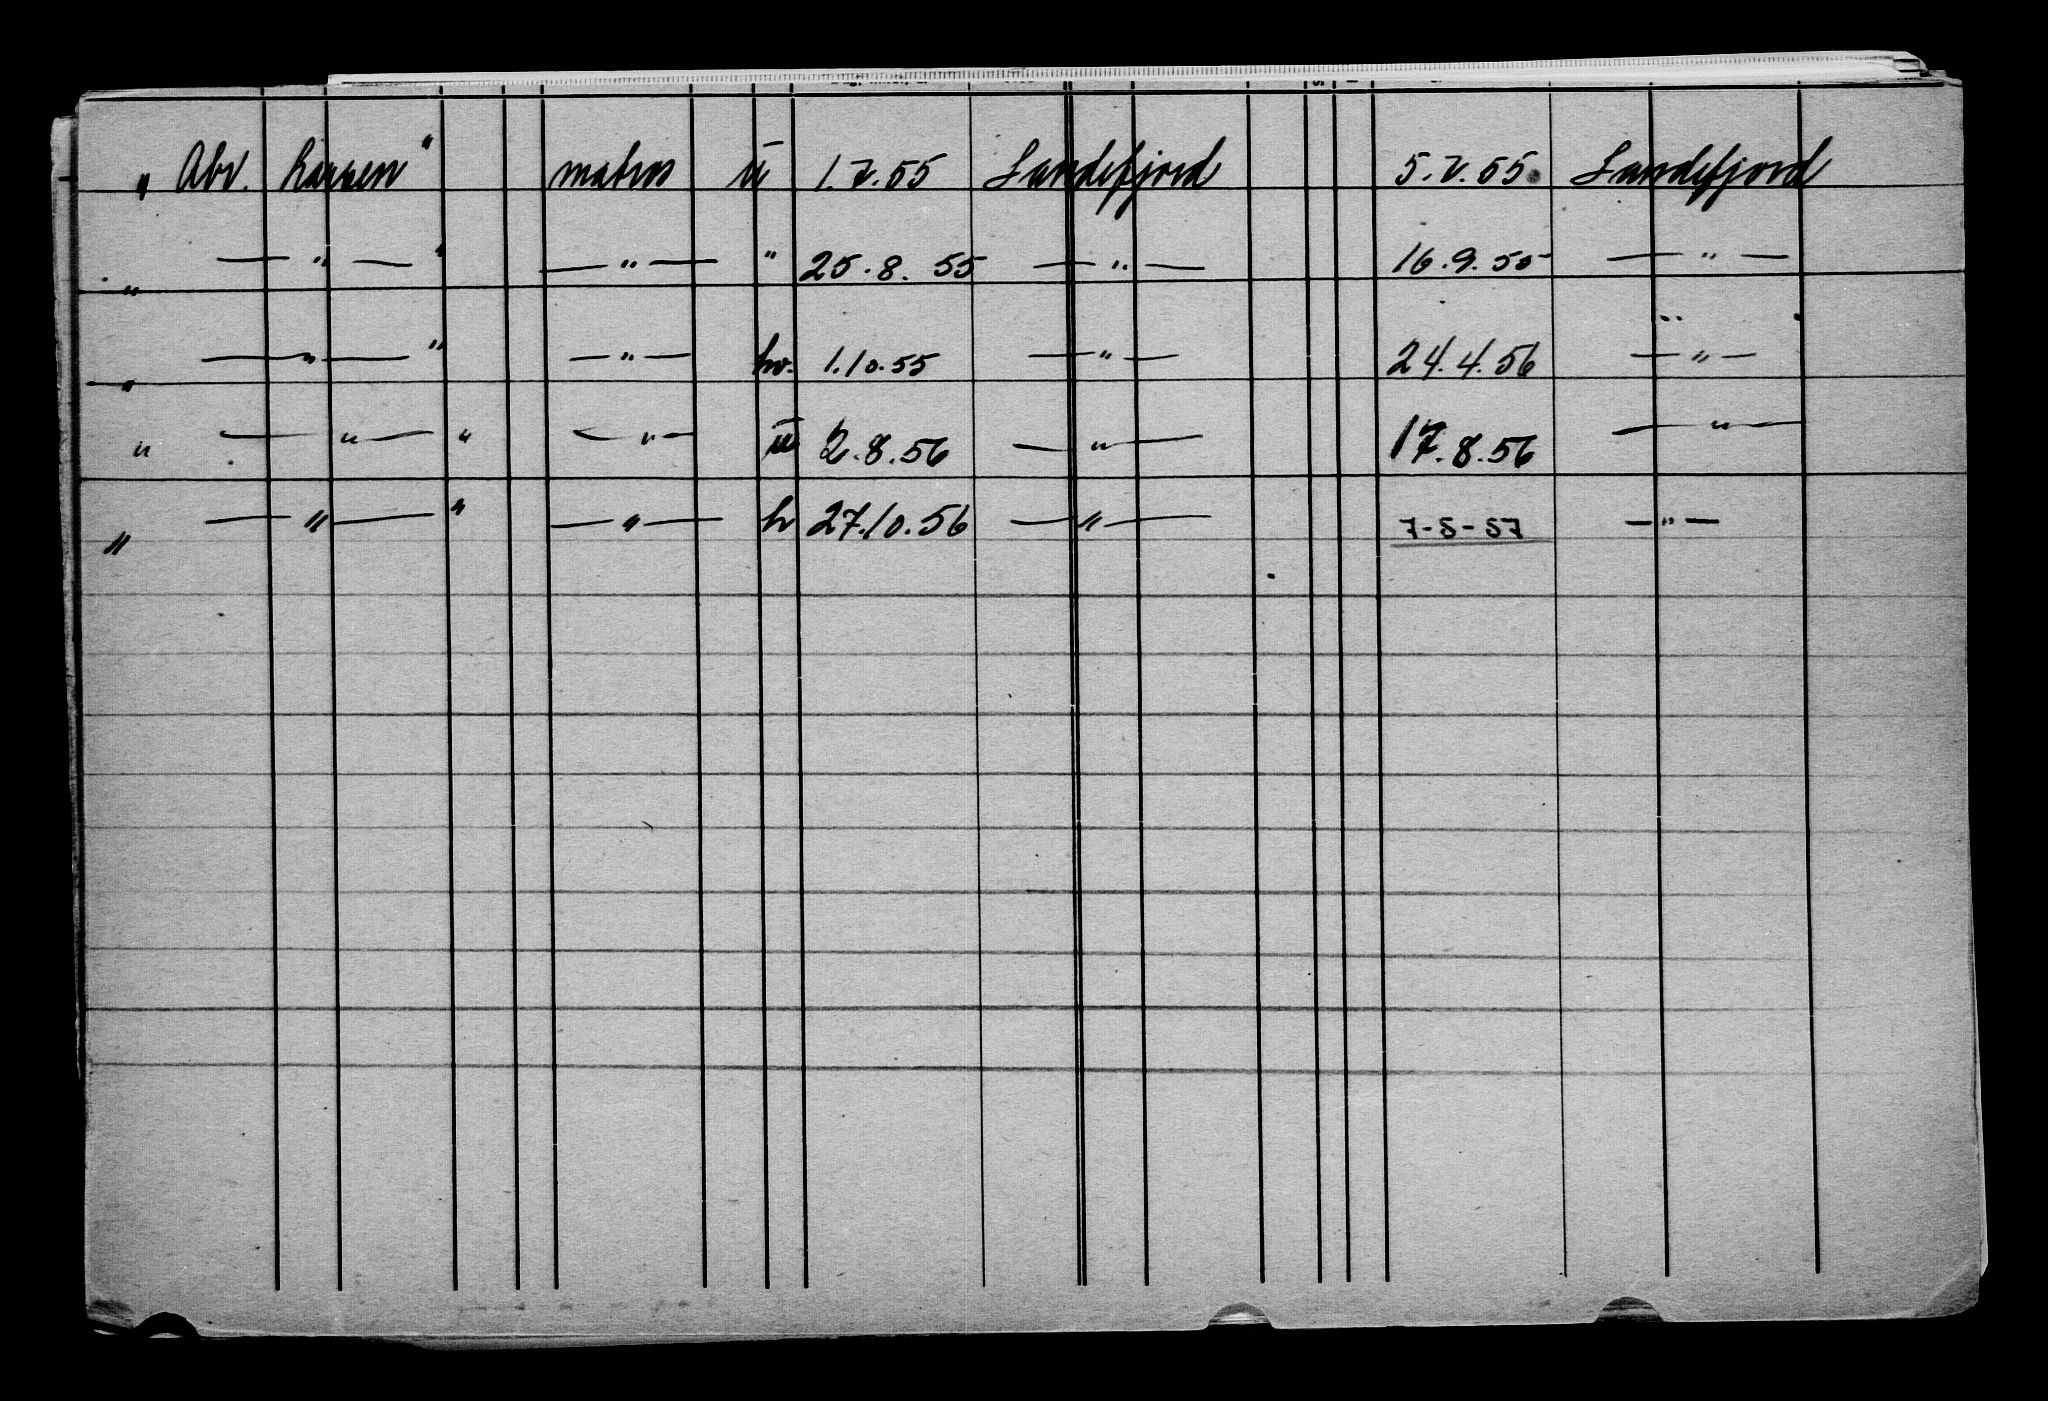 " Abr. Larsen" matros u 1.7.55 Sandefjord 5.7.55 Sandefjord
" — " — " — " — " 25.8.55 — " — 16.9.55 — " —
" — " — " — " — hv. 1.10.55 — " — 24.4.56 — " —
" — " — " — " — u 2.8.56 — " — 17.8.56 — " —
" — " — " — " — h 27.10.56 — " — 7-5-57 — " —